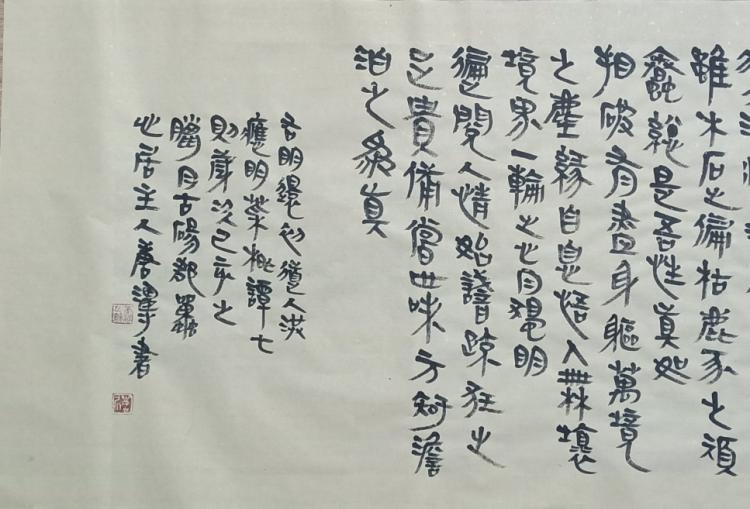 雖木石之偏枯鹿豕之頑
蠢總是吾性真如
破有盡身軀萬境
之塵緣自息悟入無壞
境界一輪之心月獨明
遍閱人情始識疎狂之
足貴備嘗世味方知澹
泊之為真
右明還初道人洪
應明菜根譚七
則歲次己亥之
臘月古陽郡
心居主人書